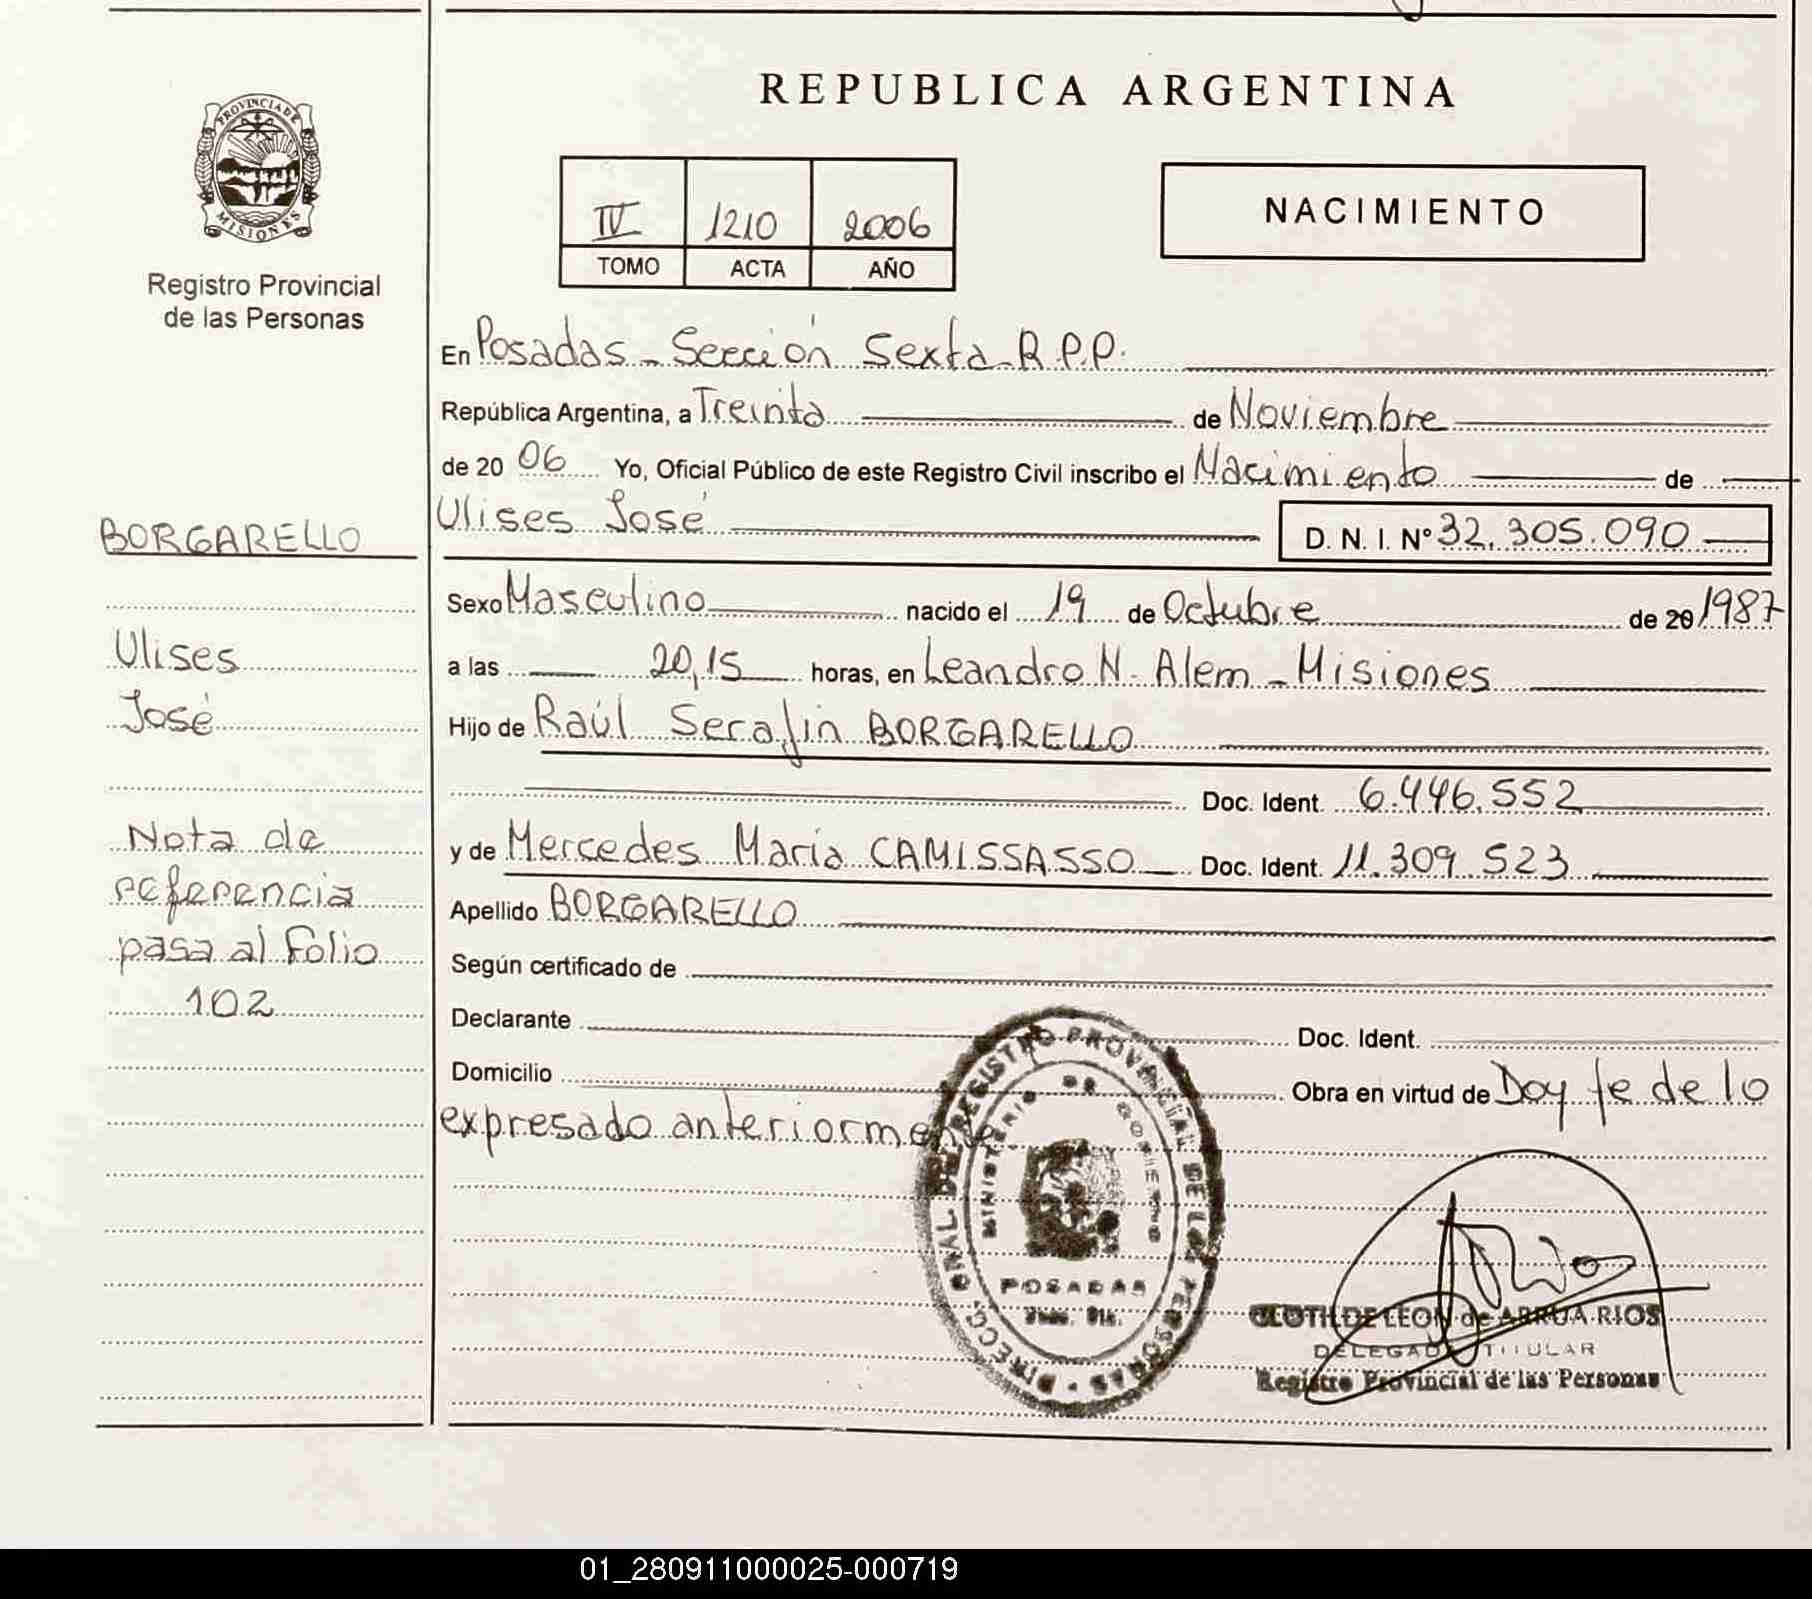 REPUBLICA ARGENTINA
PROVINCIA DE
MISIONES
Registro Provincial
de las Personas
IV 1210 2006
TOMO ACTA AÑO
NACIMIENTO
En Posadas - Sección Sexta R.P.P.
República Argentina, a Treinta de Noviembre
de 20 06 Yo, Oficial Público de este Registro Civil inscribo el Nacimiento de
Ulises José D. N. I. Nº 32.305.090
BORGARELLO
Ulises
José
Nota de
referencia
pasa al Folio
102
Sexo Masculino nacido el 19 de Octubre de 20 1987
a las 20,15 horas, en Leandro N. Alem - Misiones
Hijo de Raúl Serafin BORGARELLO
Doc. Ident. 6.446.552
y de Mercedes Maria CAMISSASSO Doc. Ident. 11.309.523
Apellido BORGARELLO
Según certificado de
Declarante Doc. Ident.
Domicilio Obra en virtud de Doy fe de lo
expresado anteriormente
DIRECC. GRAL. DEL REGISTRO PROVINCIAL DE LAS PERSONAS
MINISTERIO DE GOBIERNO
POSADAS
CLOTILDE LEON de ARRUA RIOS
DELEGADA TITULAR
Registro Provincial de las Personas
01_280911000025-000719